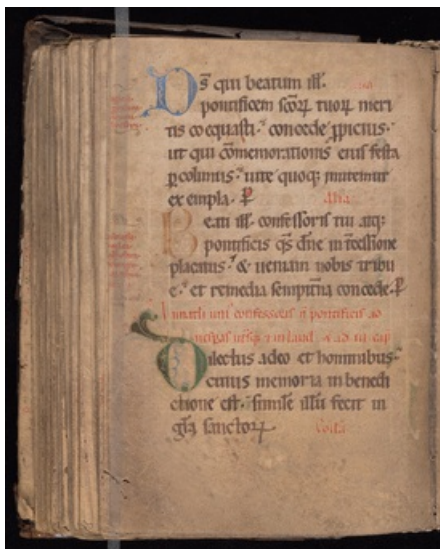 Ds̄ qui beatum ill̄.
pontificem sc̄oꝝ tuoꝝ meri
tis coequasti. concede ꝓpicius.
ut qui cōmemorationis eius festa
ꝑcolimus. uite quoq; imitemur
exempla. ꝑ Alia
Beati ill̄. confessoris tui atq;
pontificis qs̄ dn̄e intercessione
placatus. & ueniam nobis tribu
e. et remedia sempit̄na concede. ꝑ
confessoris ñ pontificis ad
Dilectus adeo et hominibus.
cuius memoria in benedi
ctione est. simile illū fecit in
gl̄a sanctoꝝ.